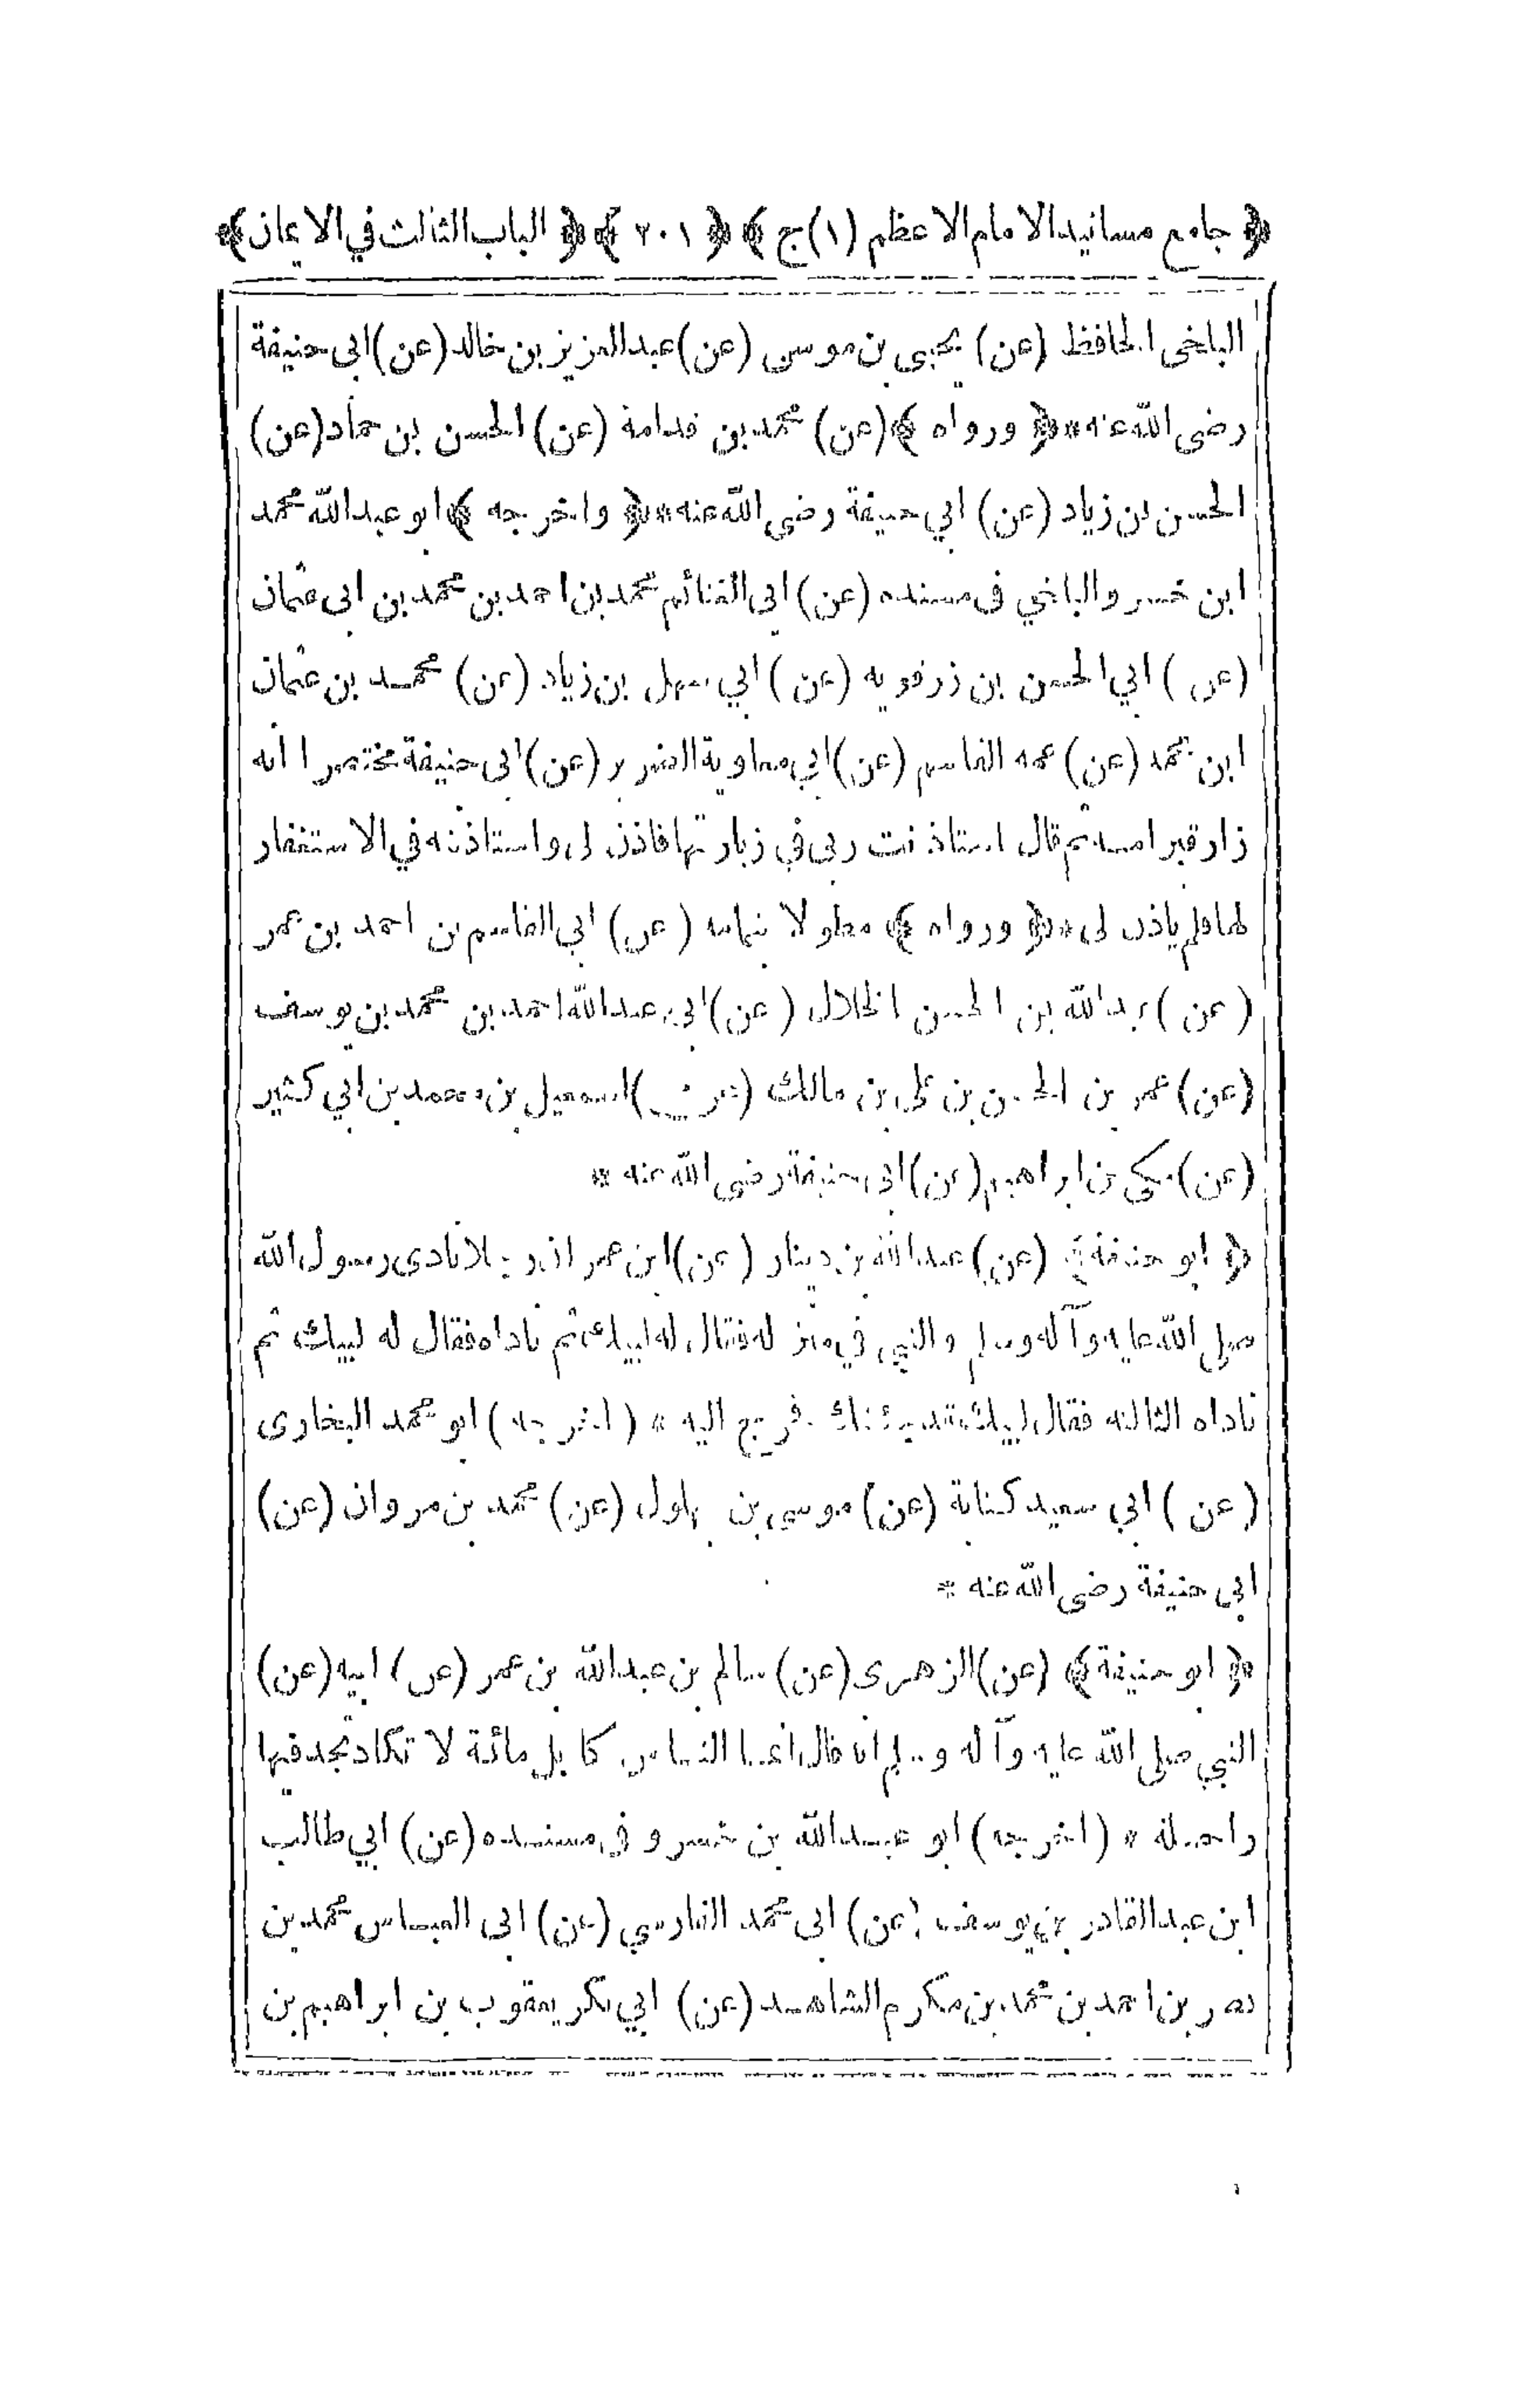 ﴿ جامع مسانيد الامام الاعظم (١) ج ﴾ ﴿ ٢٠١ ﴾ ﴿ الباب الثالث في الايمان ﴾
البلخى الحافظ (عن) يحيى بن موسى (عن) عبد العزيز بن خالد (عن) ابى حنيفة
رضى الله عنه * ﴿ ورواه ﴾ (عن) محمد بن قدامة (عن) الحسن بن حماد (عن)
الحسن بن زياد (عن) ابي حنيفة رضى الله عنه * ﴿ واخرجه ﴾ ابو عبد الله محمد
ابن خسرو البلخي فى مسنده (عن) ابى الغنائم محمد بن احمد بن محمد بن ابى عثمان
(عن) ابي الحسن بن زرقويه (عن) ابي سهل بن زياد (عن) محمد بن عثمان
ابن محمد (عن) عمه القاسم (عن) ابي معاوية الضرير (عن) ابى حنيفة مختصرا انه
زار قبر امه ثم قال استاذنت ربى في زيارتها فاذن لى واستاذنه في الاستغفار
لها فلم ياذن لى * ﴿ ورواه ﴾ مطولا بتمامه (عن) ابي القاسم بن احمد بن عمر
(عن) عبد الله بن الحسن الخلال (عن) ابى عبد الله احمد بن محمد بن يوسف
(عن) عمر بن الحسن بن على بن مالك (عن) اسمعيل بن محمد بن ابي كثير
(عن) مكي بن ابراهيم (عن) ابى حنيفة رضى الله عنه *
﴿ ابو حنيفة ﴾ (عن) عبد الله بن دينار (عن) ابن عمر ان رجلا نادى رسول الله
صلى الله عليه وآله وسلم والنبي في منزله فقال له لبيك ثم ناداه فقال له لبيك ثم
ناداه الثالثه فقال لبيك قد جئتك فخرج اليه * (اخرجه) ابو محمد البخارى
(عن) ابي سعيد كتابة (عن) موسى بن بهلول (عن) محمد بن مروان (عن)
ابى حنيفة رضى الله عنه *
﴿ ابو حنيفة ﴾ (عن) الزهرى (عن) سالم بن عبد الله بن عمر (عن) ابيه (عن)
النبي صلى الله عليه وآله وسلم انه قال انما الناس كابل مائة لا تكاد تجد فيها
راحلة * (اخرجه) ابو عبد الله بن خسرو فى مسنده (عن) ابي طالب
ابن عبد القادر بن يوسف (عن) ابى محمد الفارسي (عن) ابى العباس محمد بن
نصر بن احمد بن محمد بن مكرم الشاهد (عن) ابي بكر يعقوب بن ابراهيم بن